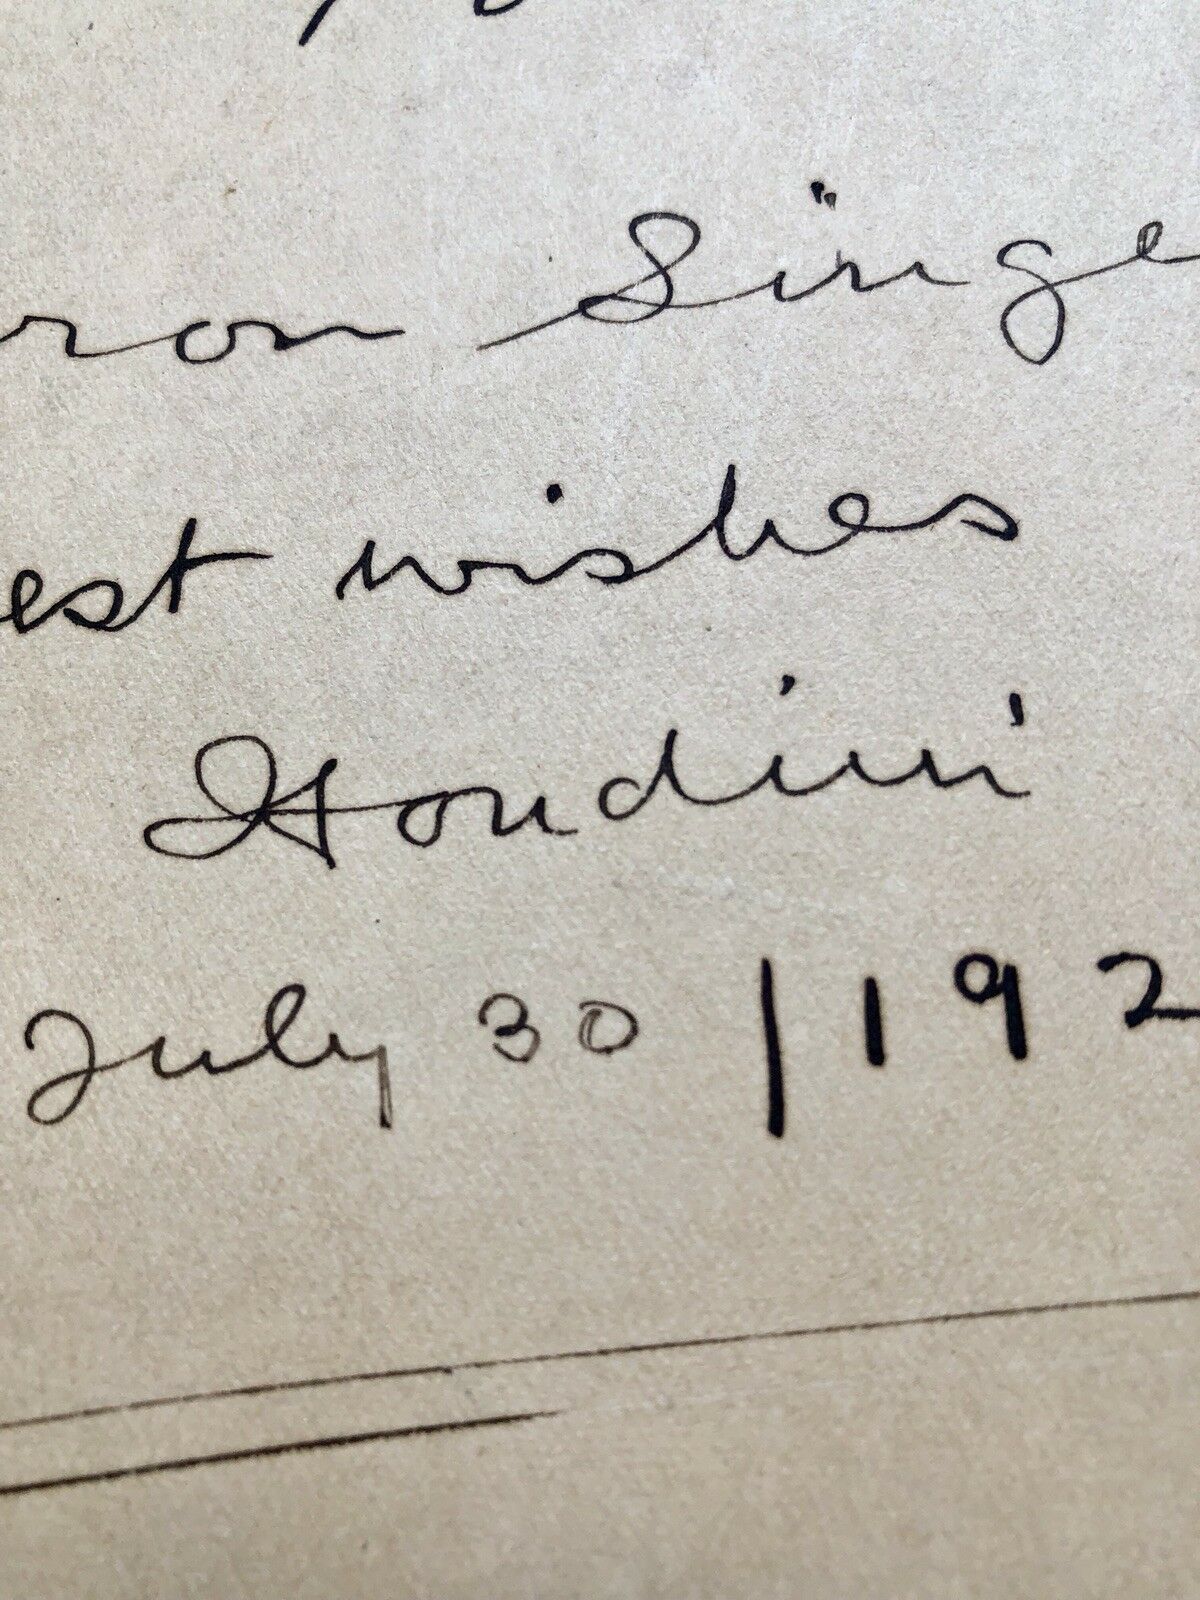 ron Singe
est wishes
Houdini
July 30/192